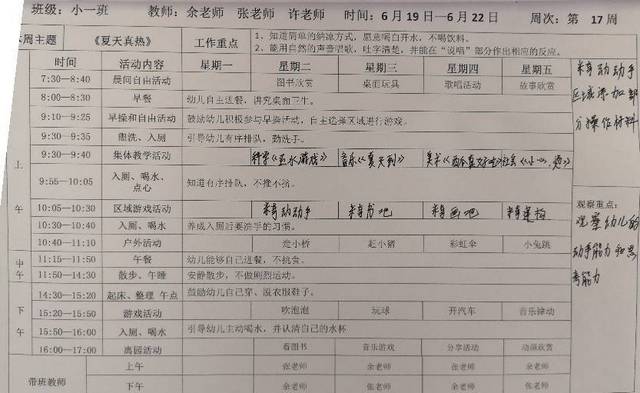 班级：小一班 教师：余老师 张老师 许老师 时间：6月19日—6月22日 周次：第 17周
本周主题 《夏天真热》 工作重点 1、知道简单的纳凉方式，愿意喝白开水，不喝饮料。
2、能用自然的声音唱歌，吐字清楚，并能在“说唱”部分作出相应的反应。
时间 活动内容 星期一 星期二 星期三 星期四 星期五
7:30—8:40 晨间自由活动 图书欣赏 桌面玩具 歌唱活动 故事欣赏
8:00—8:30 早餐 幼儿自主进餐，讲究桌面卫生。
9:10—9:25 早操和自由活动 鼓励幼儿积极参与早操活动，自主选择区域进行游戏。
9:30—9:35 盥洗、入厕 引导幼儿有序排队，勤洗手。
上
9:30—9:40 集体教学活动 音乐《夏天到》
9:55—10:05 入厕、喝水、点心 知道有序排队，不推不挤。
午
10:05—10:30 区域游戏活动 动动手 书吧 画吧
10:30—10:40 入厕、喝水 养成入厕后要洗手的习惯。
10:40—11:10 户外活动 走小桥 赶小猪 彩虹伞 小兔跳
中
11:15—11:50 午餐 幼儿能够自己进餐，不挑食。
午
11:50—14:30 散步、午睡 安静散步，不做剧烈运动。
14:30—15:20 起床、整理 午点 鼓励幼儿自己穿、脱衣服鞋子。
下
15:20—15:50 游戏活动 吹泡泡 玩球 开汽车 音乐律动
午
15:50—16:00 入厕、喝水 引导幼儿主动喝水，并认清自己的水杯
16:00—17:00 离园活动 看图书 音乐游戏 分享活动 动画欣赏
带班教师 上午 张老师 余老师 张老师 余老师
下午 余老师 张老师 余老师 张老师
动动手
区域添加部
分操作材料
观察重点：
观察幼儿的
动手能力和思
考能力